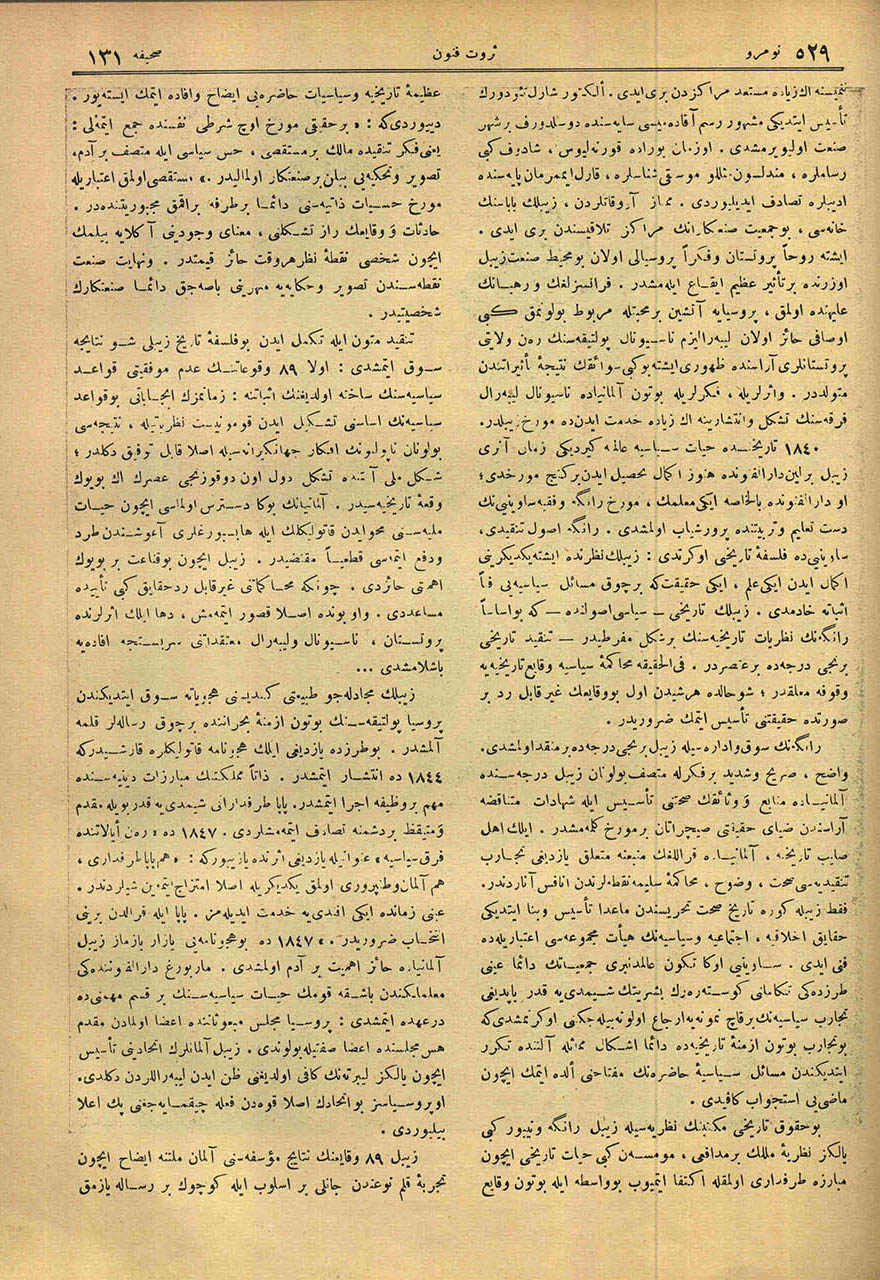 ٥٢٩ نومرو
ثروت فنون
صحيفه ١٣١
اك زياده مستعد مراكزدن برى ايدى . ألكتور شارل تئودورك
تأسيس ايتديكى مشهور رسم آقاده‌ميسى سايه‌سنده دوسلدورف برشهر
صنعت اوليويرمشدى . اوزمان بوراده قورنه‌ليوس ، شادوف كبى
رساملره ، مندلسون‌ مللو موسقى‌شناسلره ، قارل ايممرمان پايه‌سنده
اديبلره تصادف ايديليوردى . ممتاز آروقاتلردن ، زيبلك باباسنك
خانه‌سى ، بوجمعيت صنعتكارانك مراكز تلاقيسندن برى ايدى .
ايشته روحاً پروتستان وفكراً پروسيالى اولان بومحيط صنعت زيبل
اوزرنده برتأثير عظيم ايقاع ايله‌مشدر . فرانسزلغك و رهبانك
عليهنده اولمق ، پروسيايه آتشين برمحبتله مربوط بولونمق كبى
اوصافى حائز اولان ليبه‌راليزم ناسيونال پولتيقه‌سنك ره‌ن ولايتى
پروتستانلرى آراسنده ظهورى ايشته بوكبى سوائقك نتيجهٔ تأثيراتندن
متولددر . واثرلريله ، فكرلريله بوتون آلمانياده ناسيونال ليبه‌رال
فرقه‌سنك تشكل وانتشارينه اك زياده خدمت ايدن‌ده مورخ زيبلدر.
١٨٤٠ تاريخنده حيات سياسيه عالمنه كيرديكى زمان آنرى
زيبل برلين دارالفنونده هنوز اكمال تحصيل ايدن بركنج مورخدى ؛
او دارالفنونده بالخاصه ايكى معلمك ، مورخ رانكه وفقيه ساوينى‌نك
دست تعليم وتربيتنده پرورشياب اولمشدى . رانكه اصول تنقيدى،
ساوينى‌ده فلسفهٔ تاريخى اوكرتدى : زيبلك نظرنده ايشته يكديكرينى
اكمال ايدن ايكى علم ، ايكى حقيقت كه برچوق مسائل سياسيه‌يى فناً
اثباته خادمدى . زيبلك تاريخى — سياسى اصولنده — كه بواساساً
رانكه‌نك نظريات تاريخيه‌سنك برشكل مفرطيدر — تنقيد تاريخى
برنجى درجه‌ده برعنصردر . فى‌الحقيقه محاكمهٔ سياسيه وقايع تاريخيه‌يه
وقوفه معلقدر ؛ شوحالده هرشيدن اول بووقايعك غيرقابل رد بر
صورتده حقيقتنى تأسيس ايتمك ضروريدر .
رانكه‌نك سوق واداره‌سيله زيبل برنجى درجه‌ده برمنقد اولمشدى.
واضح ، صريح وشديد برفكرله متصف بولونان زيبل درجه‌سنده
آلمانياده منابع و وثائقك صحتنى تأسيس ايله شهادات متناقضه
آراسندن ضياى حقيقتى صيچراتان برمورخ كلمه‌مشدر . ايلك اهل
صليب تاريخنه ، آلمانياده قراللغك منبعنه متعلق يازديغى تجارب
تنقيديه‌سى صحت ، وضوح ، محاكمهٔ سليمه نقطه‌لرندن انفس آثاردندر.
فقط زيبله كوره تاريخ صحت تحريسندن ماعدا تأسيس وبنا ايتديكى
حقايق اخلاقيه ، اجتماعيه وسياسيه‌نك هيأت مجموعه‌سى اعتباريله‌ده
فنى ايدى . ساوينى اوكا تكون عالمدنبرى جمعياتك دائما عينى
طرزده‌كى تكاملنى كوستره‌رك بشريتك شيمدى‌يه قدر ياپديغى
تجارب سياسيه‌نك برقاچ نمونه‌يه ارجاع اولونه‌بيله‌جكنى اوكرتمشدى كه
بوتجارب بوتون ازمنهٔ تاريخيه‌ده دائما اشكال مماثله آلتنده تكرر
ايتديكندن مسائل سياسيهٔ حاضره‌نك مفتاحنى ألده ايتمك ايچون
ماضى‌يى استجواب كافيدى .
بوحقوق تاريخى مكتبنك نظريه‌سيله زيبل رانكه ونيبور كبى
يالكز نظريهٔ مللك برمدافعى ، مومسه‌ن كبى حيات تاريخى ايچون
مبارزه طرفدارى اولمقله اكتفا ايتميوب بوواسطه ايله بوتون وقايع
عظيمهٔ تاريخيه وسياسيات حاضره‌يى ايضاح وافاده ايتمك ايسته‌يور .
ديوردى كه : « برحقيقى مورخ اوچ شرطى نفسنده جمع ايتمه‌لى :
يعنى فكر تنقيده مالك برمستقصى ، حس سياسى ايله متصف برآدم،
تصوير وتحكيه‌يى بيلن برصنعتكار اولماليدر .» مستقصى اولمق اعتباريله
مورخ حسيات ذاتيه‌سنى دائما برطرفه براقمق مجبوريتنده‌در .
حادثات ووقايعك راز تشكلنى ، معناى وجودينى آكلايه بيلمك
ايچون شخصى نقطهٔ نظر هروقت حائز قيمتدر . ونهايت صنعت
نقطه‌سندن تصوير وحكايه‌يه مهرينى باصه‌جق دائما صنعتكارك
شخصيتيدر .
تنقيد متون ايله تكمل ايدن بوفلسفهٔ تاريخ زيبلى شو نتايجه
سوق ايتمشدى : اولا ٨٩ وقوعاتنك عدم موفقيتى قواعد
سياسيه‌سنك ساخته اولديغنك اثباتنه : زمانمزك ايجاباتى بوقواعد
سياسيه‌نك اساسنى تشكيل ايدن قوموننيت نظريتيله ، نتيجه‌سى
بولونان ناپوليونك افكار جهانكيرانه‌سيله اصلا قابل توفيق دكلدر ؛
شكل ملى آلتنده تشكل دول اون دوقوزنجى عصرك اك بويوك
وقعهٔ تاريخيه‌سيدر . آلمانيانك بوكا دسترس اولماسى ايچون حيات
مليه‌سنى محوايدن قاتوليكلك ايله هابسبورغلرى آغوشندن طرد
ودفع ايتمه‌سى قطعياً مقتضيدر . زيبل ايچون بوقناعت بر بويوك
اهميتى حائزدى . چونكه محاكماتى غيرقابل رد حقايق كبى تأييده
مساعددى . واو بونده اصلا قصور ايتمه‌مش ، دها ايلك اثرلرنده
پروتستان ، ناسيونال وليبه‌رال معتقداتنى سربستجه افاده‌يه
باشلامشدى ...
زيبلك مجادله‌جو طبيعتى كنديسنى هجوياته سوق ايتديكندن
پروسيا پولتيقه‌سنك بوتون ازمنهٔ بحراننده برچوق رساله‌لر قلمه
آلمشدر . بوطرزده يازديغى ايلك هجونامه قاتوليكلره قارشيدركه
١٨٤٤ ده انتشار ايتمشدر . ذاتاً مملكتنك مبارزات دينيه‌سنده
مهم بروظيفه اجرا ايتمشدر. پاپا طرفدارانى شيمدى‌يه قدر بويله مقدم
ومتيقظ بردشمنه تصادف ايتمه‌مشلردى . ١٨٤٧ ده « ره‌ن أيالاتنده
فرق سياسيه » عنوانيله يازديغى اثرنده يازيوركه : « هم پاپا طرفدارى ،
هم آلمان وطنپرورى اولمق يكديكريله اصلا امتزاج ايتمه‌ين شيلردندر .
عينى زمانده ايكى افندى‌يه خدمت ايديله‌مز . پاپا ايله قرالدن برينى
انتخاب ضروريدر .» ١٨٤٧ ده بوهجونامه‌يى يازار يازماز زيبل
آلمانياده حائز اهميت بر آدم اولمشدى . ماربورغ دارالفوننده‌كى
معلملكندن باشقه قومك حيات سياسيه‌سنك بر قسم مهمنى‌ده
درعهده ايتمشدى : پروسيا مجلس مبعوثاننده اعضا اولمادن مقدم
هس مجلسنده اعضا صفتيله بولوندى . زيبل آلمانلرك اتحادينى تأسيس
ايچون يالكز ليبرته‌نك كافى اولديغنى ظن ايدن ليبه‌راللردن دكلدى.
او پروسياسز بواتحادك اصلا قوه‌دن فعله چيقمايه‌جغنى پك اعلا
بيليوردى .
زيبل ٨٩ وقايعنك نتايج مؤسفه‌سنى آلمان ملتنه ايضاح ايچون
تجربهٔ قلم نوعندن جانلى بر اسلوب ايله كوچوك بر رساله يازمق